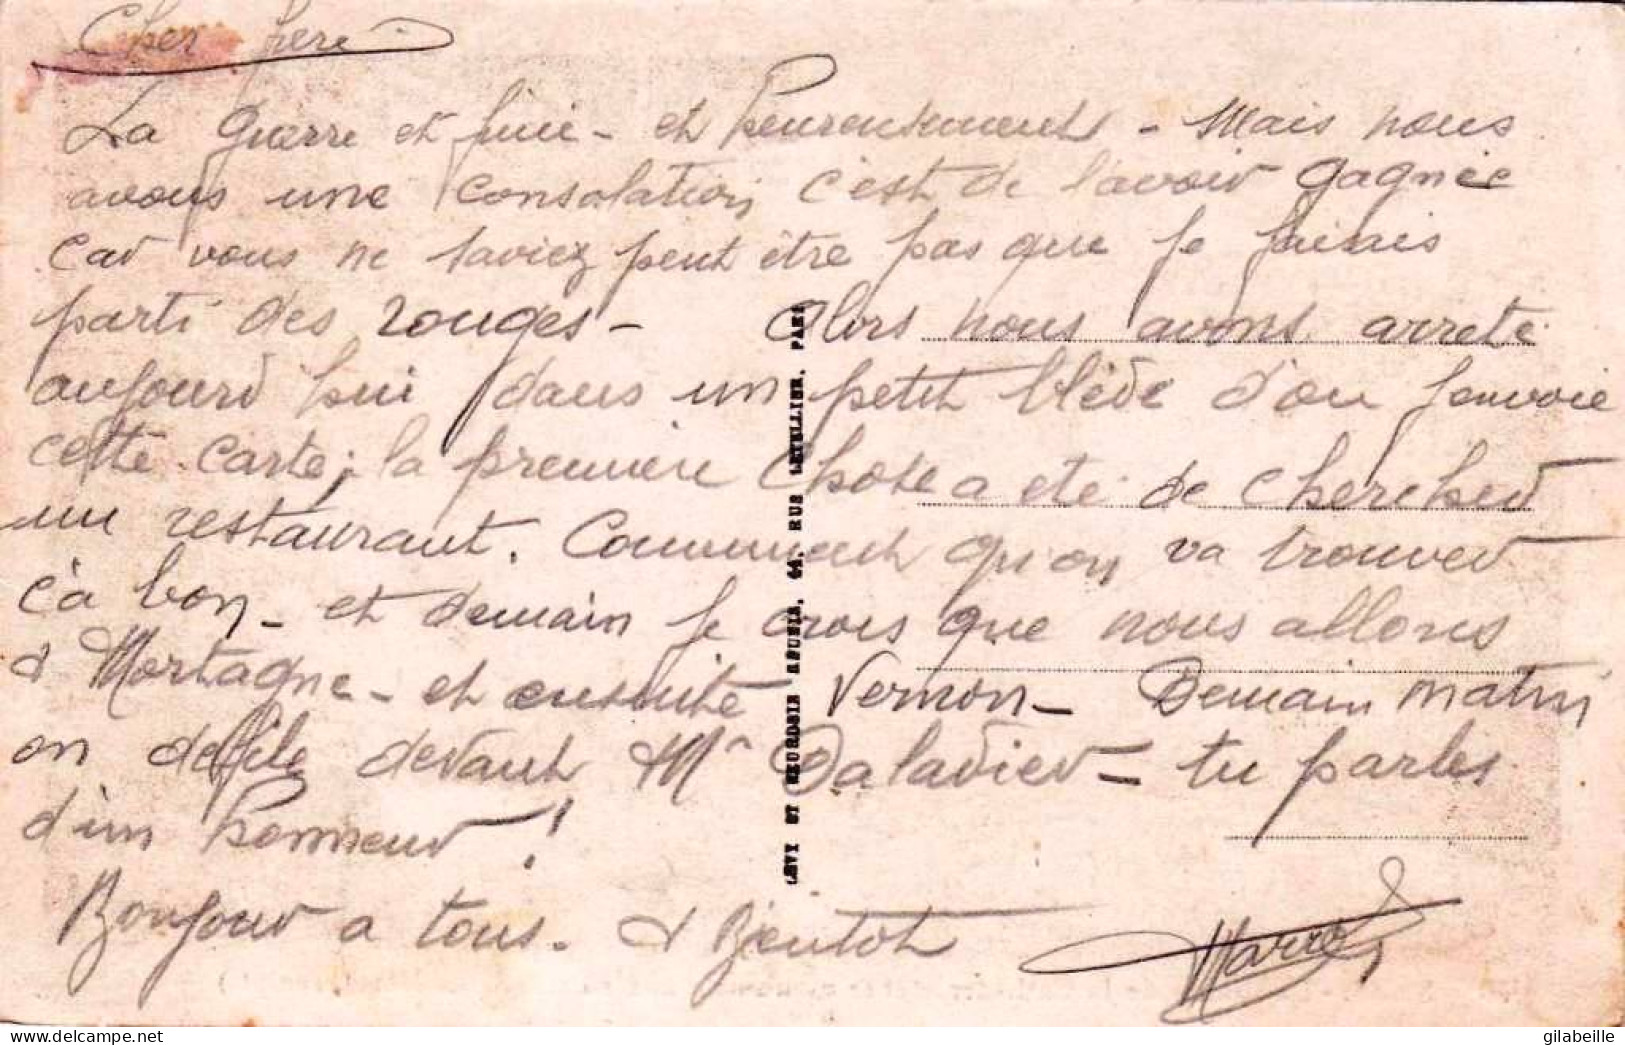 Cher frere
La guerre et finie - et heureusement - Mais nous
avons une consolation c'est de l'avoir gagnée
car vous ne saviez peut être pas que je faisais
parti des rouges - Alors nous avons arreté
aujourd hui dans un petit blède d'ou j'envoie
cette carte, la première chose a eté de chercher
un restaurant. Comment qu'on va trouver
c'à bon - et demain je crois que nous allons
à Mortagne - et ensuite Vernon - Demain matin
on défile devant Mr Daladier - tu parles
d'un honneur !
Bonjour a tous. à Bientot
LEVY ET NEURDEIN RÉUNIS, 44, RUE LETELLIER, PARIS
gilabeille
delcampe.net